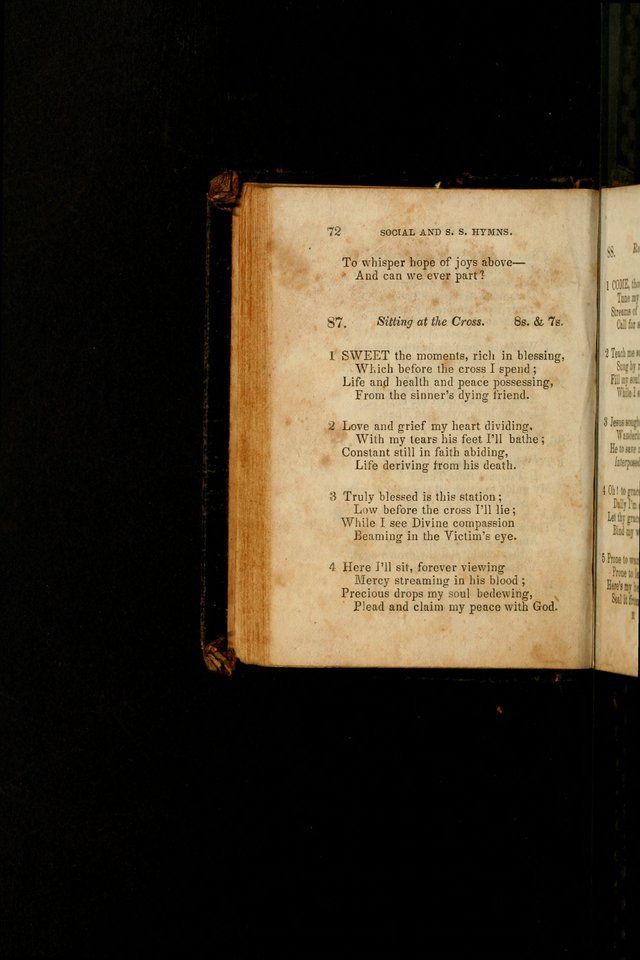 72 SOCIAL AND S. S. HYMNS.
To whisper hope of joys above—
And can we ever part?
87. Sitting at the Cross. 8s. & 7s.
1 SWEET the moments, rich in blessing,
Which before the cross I spend;
Life and health and peace possessing,
From the sinner's dying friend.
2 Love and grief my heart dividing,
With my tears his feet I'll bathe;
Constant still in faith abiding,
Life deriving from his death.
3 Truly blessed is this station;
Low before the cross I'll lie;
While I see Divine compassion
Beaming in the Victim's eye.
4 Here I'll sit, forever viewing
Mercy streaming in his blood;
Precious drops my soul bedewing,
Plead and claim my peace with God.
88.
1 COME,
Tune my
Streams of
Call for
2 Teach me
Sung by
Fill my
While I
3 Jesus
He to save
4 Oh! to
Daily I'm
Let thy
Bind my
5 Prone to
Prone to
Here's my
Seal it